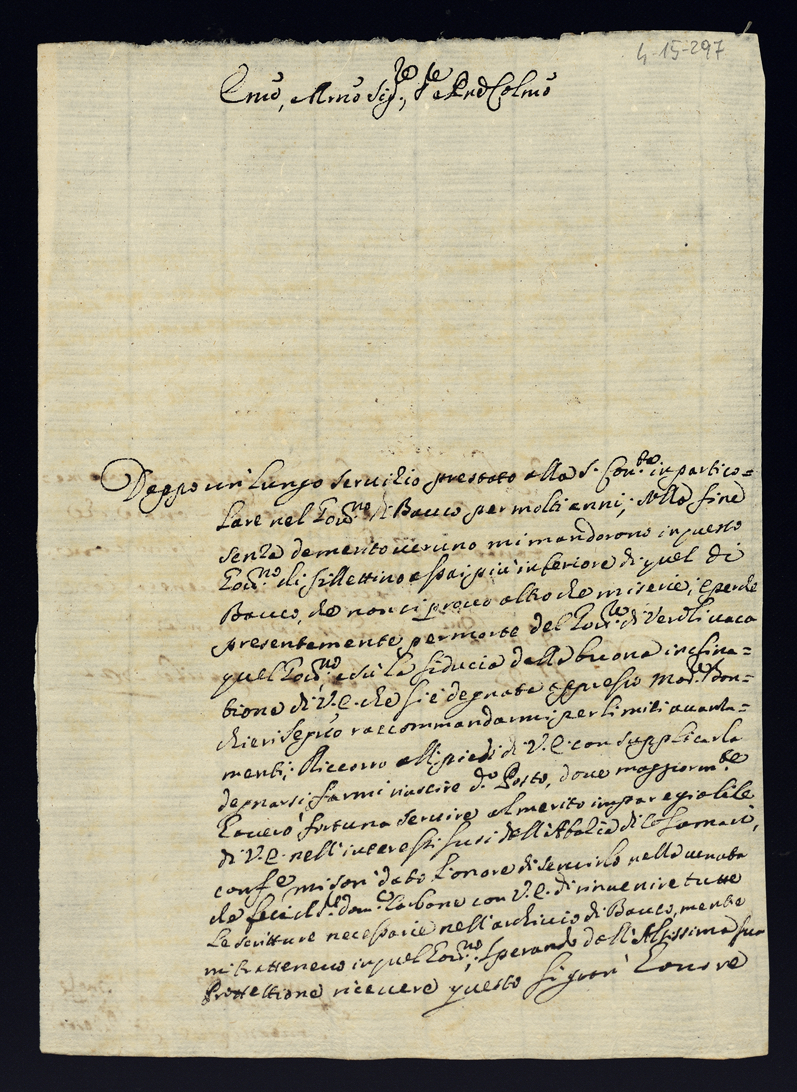 4-15-297
Emo, e Rmo Sig.re, e Pne Colmo
Doppo un' lungo servitio prestato alla S. Con.ta in partico=
lare nel Gov.no di Bauco per molti anni, alla fine
senza demerito veruno mi mandorono in questo
Gov.no di fillettino assai più inferiore di quel di
Bauco, che non ci provo altro che miserie; e perche
presentemente per morte del Gov.re di Veroli vaca
quel Gov.no, e sù la fiducia della buona inclina=
tione di V.E. che si è degnata appresso Mad.e
chieri spesso raccommandarmi per li miei avanza=
menti; Ricorro alli piedi di V.E. con supplicarla
degnarsi farmi riuscire d.o Posto, dove maggiorm.te
haverò fortuna servire al merito impareggiabile
di V.E. nell'interessi suoi dell'Abatia di Casamari,
conf.e mi son' dato l'onore di servirlo nella venuta
che fece il S.r dom.co Carbone con V.E. di rinvenire tutte
Le scritture necessarie nell'archivio di Bauco, mentre
mi trattenevo in quel Gov.no; sperando dall'Altissima sua
Protettione ricevere questo signor' honore